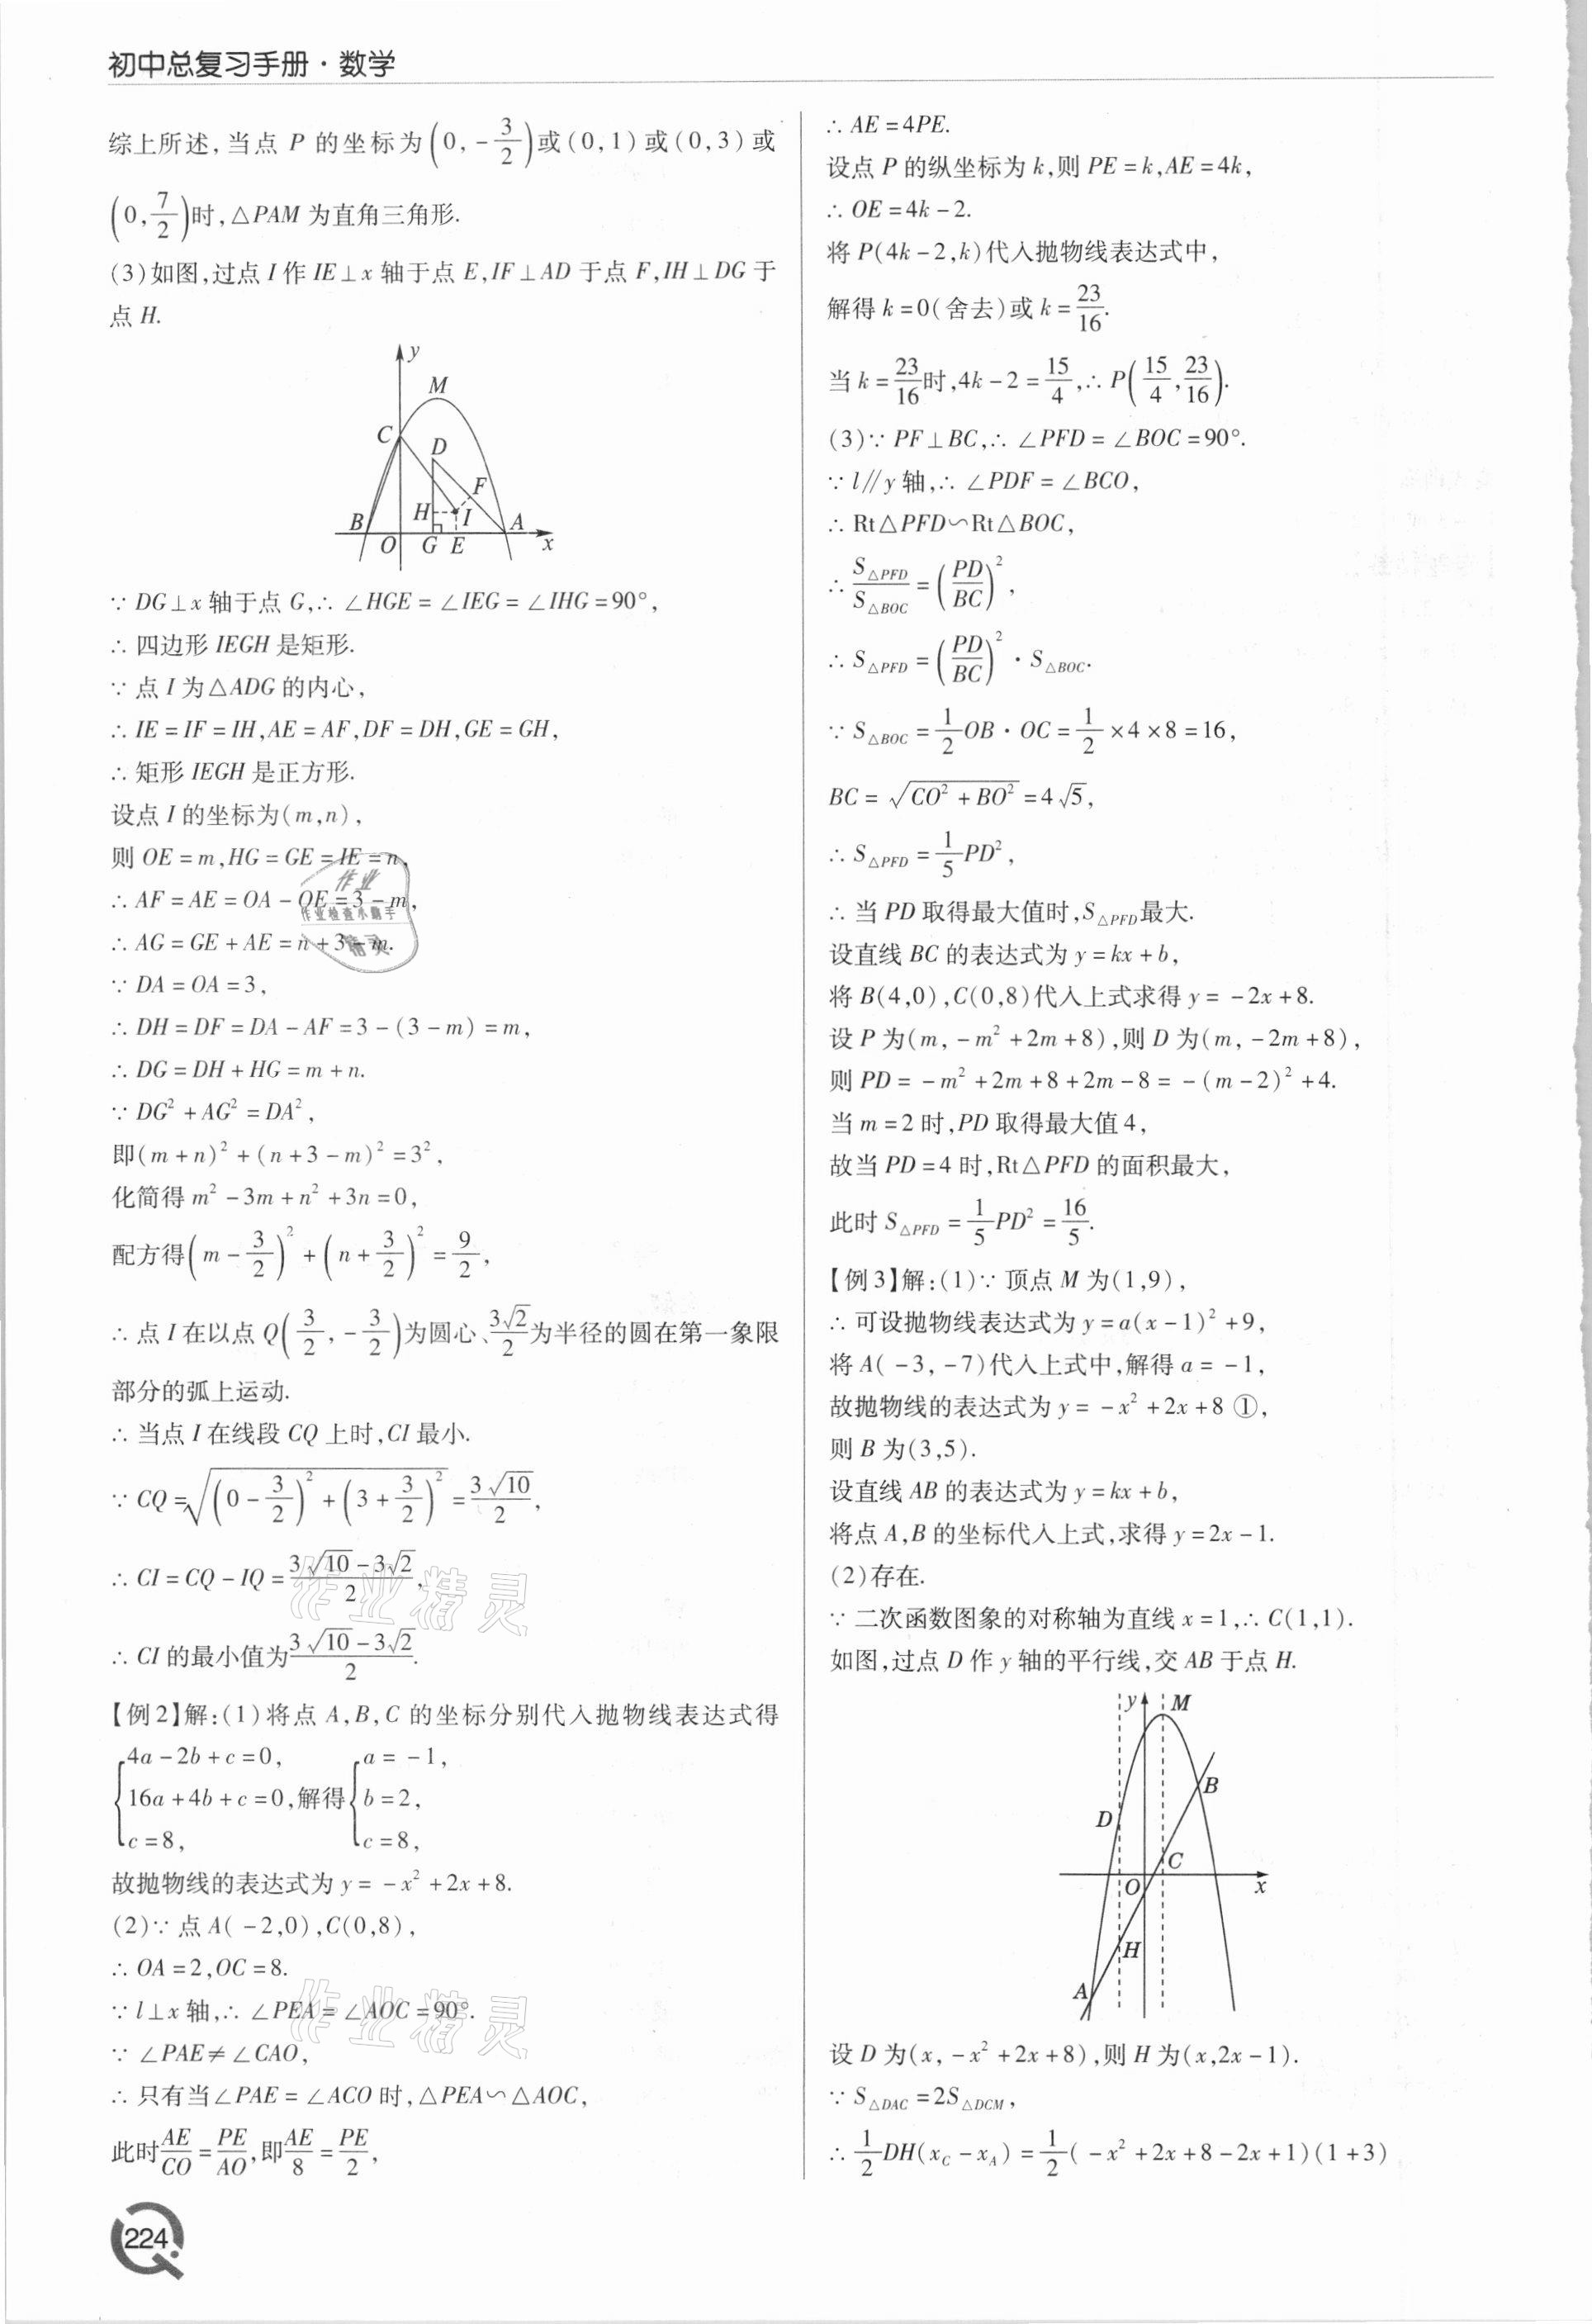 初中总复习手册·数学
综上所述,当点 P 的坐标为(0,-3/2)或(0,1)或(0,3)或
(0,7/2)时,△PAM 为直角三角形.
(3)如图,过点 I 作 IE⊥x 轴于点 E,IF⊥AD 于点 F,IH⊥DG 于
点 H.
y
M
C
D
F
H
I
B
A
O
G
E
x
∵ DG⊥x 轴于点 G,∴ ∠HGE=∠IEG=∠IHG=90°,
∴ 四边形 IEGH 是矩形.
∵ 点 I 为△ADG 的内心,
∴ IE=IF=IH,AE=AF,DF=DH,GE=GH,
∴ 矩形 IEGH 是正方形.
设点 I 的坐标为(m,n),
则 OE=m,HG=GE=IE=n,
∴ AF=AE=OA-OE=3-m,
∴ AG=GE+AE=n+3-m.
∵ DA=OA=3,
∴ DH=DF=DA-AF=3-(3-m)=m,
∴ DG=DH+HG=m+n.
∵ DG²+AG²=DA²,
即(m+n)²+(n+3-m)²=3²,
化简得 m²-3m+n²+3n=0,
配方得(m-3/2)²+(n+3/2)²=9/2,
∴ 点 I 在以点 Q(3/2,-3/2)为圆心、3√2/2为半径的圆在第一象限
部分的弧上运动.
∴ 当点 I 在线段 CQ 上时,CI 最小.
∵ CQ=√((0-3/2)²+(3+3/2)²)=3√10/2,
∴ CI=CQ-IQ=(3√10-3√2)/2,
∴ CI 的最小值为(3√10-3√2)/2.
【例2】解:(1)将点 A,B,C 的坐标分别代入抛物线表达式得
{4a-2b+c=0, {a=-1,
16a+4b+c=0,解得 b=2,
c=8, c=8,
故抛物线的表达式为 y=-x²+2x+8.
(2)∵ 点 A(-2,0),C(0,8),
∴ OA=2,OC=8.
∵ l⊥x 轴,∴ ∠PEA=∠AOC=90°.
∵ ∠PAE≠∠CAO,
∴ 只有当∠PAE=∠ACO 时,△PEA∽△AOC,
此时AE/CO=PE/AO,即AE/8=PE/2,
∴ AE=4PE.
设点 P 的纵坐标为 k,则 PE=k,AE=4k,
∴ OE=4k-2.
将 P(4k-2,k)代入抛物线表达式中,
解得 k=0(舍去)或 k=23/16.
当 k=23/16时,4k-2=15/4,∴ P(15/4,23/16).
(3)∵ PF⊥BC,∴ ∠PFD=∠BOC=90°.
∵ l∥y 轴,∴ ∠PDF=∠BCO,
∴ Rt△PFD∽Rt△BOC,
∴ S△PFD/S△BOC=(PD/BC)²,
∴ S△PFD=(PD/BC)²·S△BOC.
∵ S△BOC=1/2OB·OC=1/2×4×8=16,
BC=√(CO²+BO²)=4√5,
∴ S△PFD=1/5PD²,
∴ 当 PD 取得最大值时,S△PFD最大.
设直线 BC 的表达式为 y=kx+b,
将 B(4,0),C(0,8)代入上式求得 y=-2x+8.
设 P 为(m,-m²+2m+8),则 D 为(m,-2m+8),
则 PD=-m²+2m+8+2m-8=-(m-2)²+4.
当 m=2 时,PD 取得最大值 4,
故当 PD=4 时,Rt△PFD 的面积最大,
此时 S△PFD=1/5PD²=16/5.
【例3】解:(1)∵ 顶点 M 为(1,9),
∴ 可设抛物线表达式为 y=a(x-1)²+9,
将 A(-3,-7)代入上式中,解得 a=-1,
故抛物线的表达式为 y=-x²+2x+8 ①,
则 B 为(3,5).
设直线 AB 的表达式为 y=kx+b,
将点 A,B 的坐标代入上式,求得 y=2x-1.
(2)存在.
∵ 二次函数图象的对称轴为直线 x=1,∴ C(1,1).
如图,过点 D 作 y 轴的平行线,交 AB 于点 H.
y
M
B
D
C
O
x
H
A
设 D 为(x,-x²+2x+8),则 H 为(x,2x-1).
∵ S△DAC=2S△DCM,
∴ 1/2DH(xC-xA)=1/2(-x²+2x+8-2x+1)(1+3)
224
作业
作业检查小助手
精灵
作业精灵
作业精灵